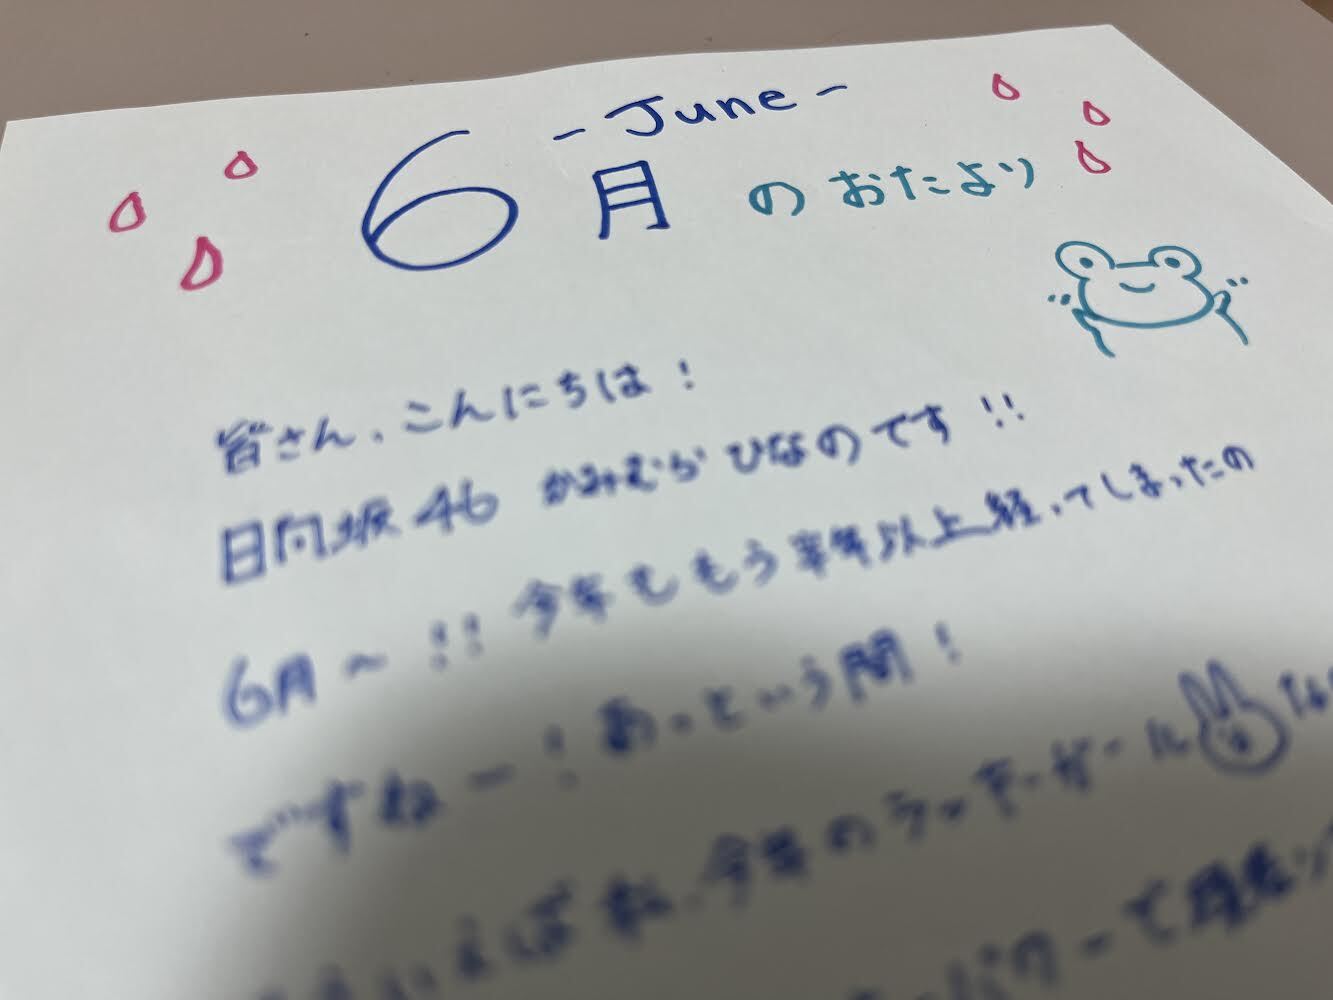 - June -
6月のおたより
皆さん、こんにちは!
日向坂46 かみむらひなのです!!
6月〜!! 今年ももう半年以上経ってしまったの
ですねー! あっという間!
いえば私、今年のラッキーガール
パワーで